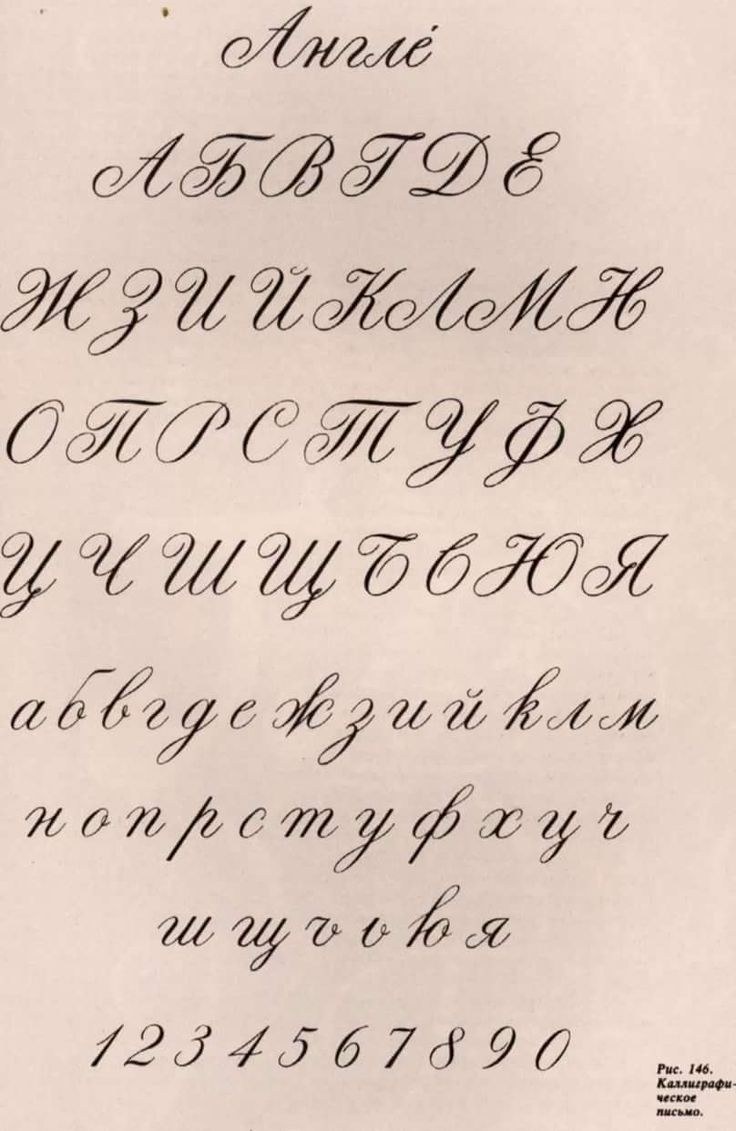 Англе́
А Б В Г Д Е
Ж З И Й К Л М Н
О П Р С Т У Ф Х
Ц Ч Ш Щ Ъ Ь Ю Я
а б в г д е ж з и й к л м
н о п р с т у ф х ц ч
ш щ ъ ь ю я
1 2 3 4 5 6 7 8 9 0
Рис. 146.
Каллиграфи-
ческое
письмо.